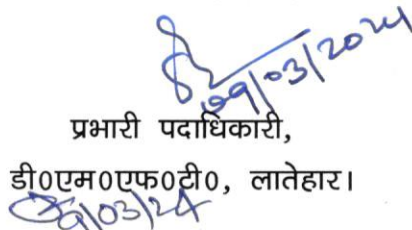 09/03/2024
प्रभारी पदाधिकारी,
डी०एम०एफ०टी०, लातेहार।
9/03/24